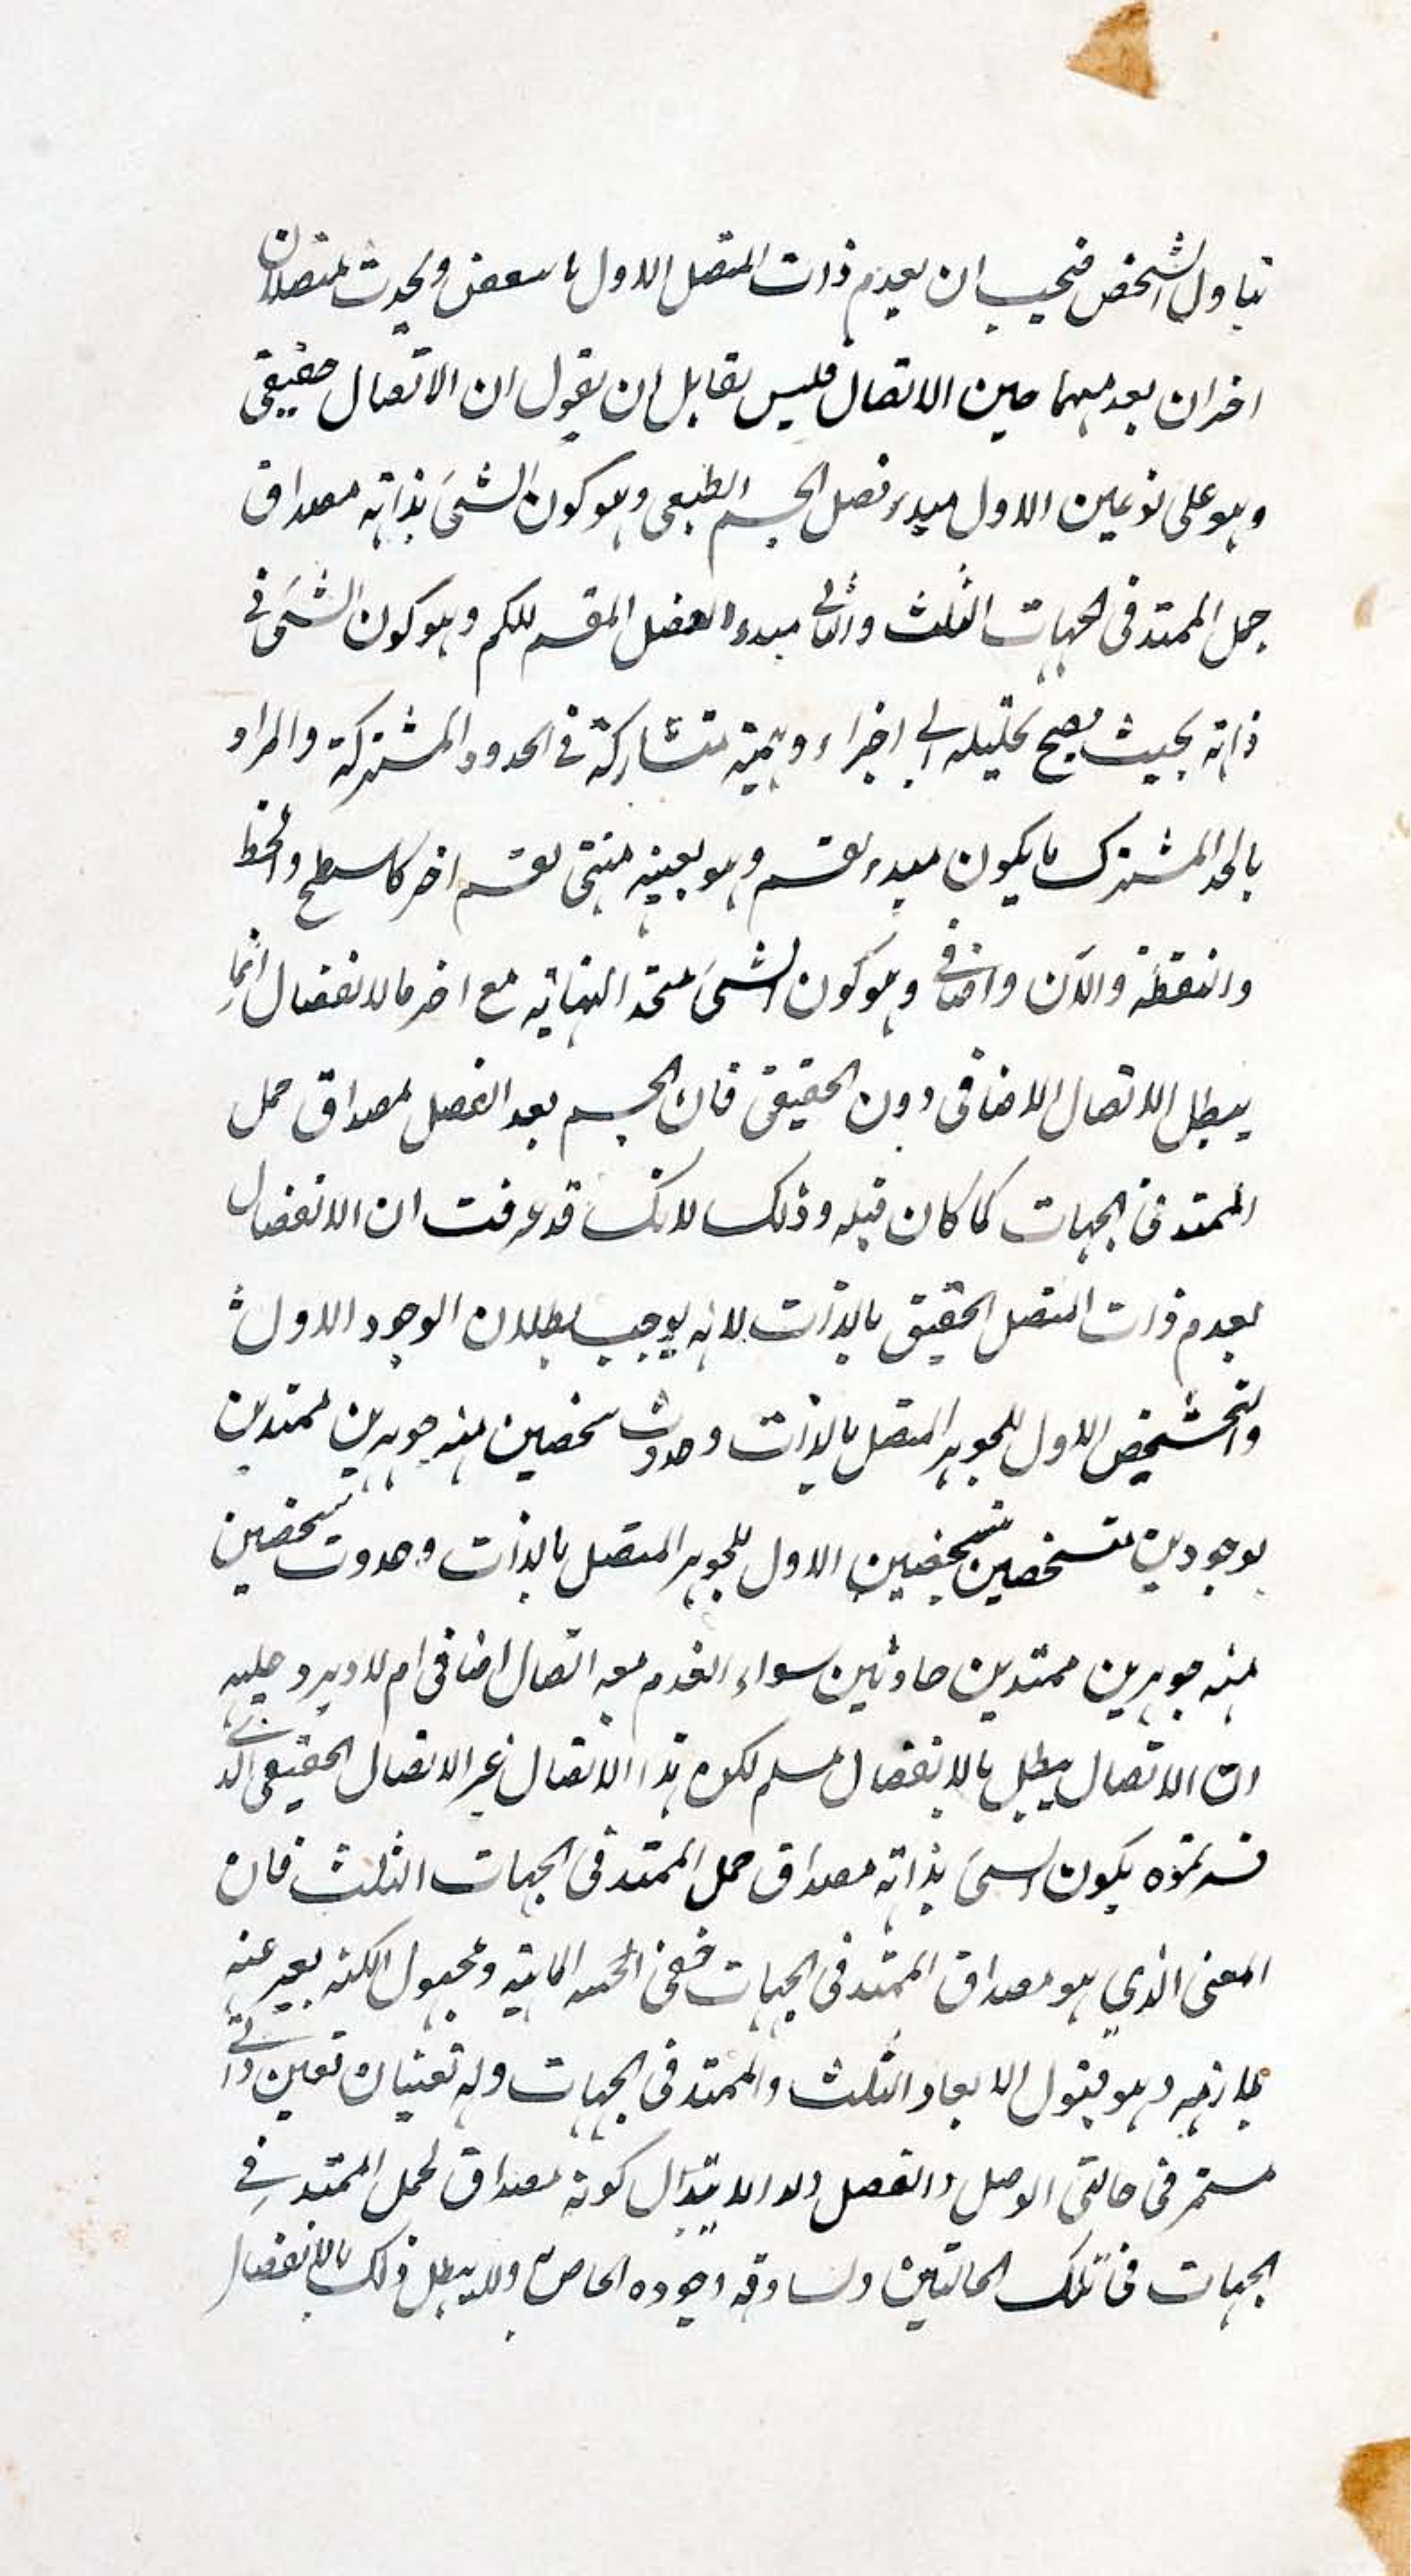 تباول الشخص فيجب ان يعدم ذات المتصل الاول بالبعض ويحدث متصلان
اخران بعدمهما حين الاتصال فليس لقابل ان يقول ان الاتصال حقيقى
وهو على نوعين الاول مبدء فصل الجسم الطبعى وهو كون الشئ بذاته مصداق
حمل الممتد فى الجهات الثلث والثانى مبدء الفصل المقسم للكم وهو كون الشئ فى
ذاته بحيث يصح تحليله الى اجزاء وهمية متشاركة فى الحدود المشتركة والمراد
بالحد المشترك ما يكون مبدء لقسم وهو بعينه منتهى لقسم اخر كالسطح والخط
والنقطة والآن واضافى وهو كون الشئ متحد النهاية مع اخر فالانفصال انما
يبطل الاتصال الاضافى دون الحقيقى فان الجسم بعد الفصل مصداق حمل
الممتد فى الجهات كما كان قبله وذلك لانك قد عرفت ان الانفصال
يعدم ذات المتصل الحقيقى بالذات لانه يوجب بطلان الوجود الاول
والتشخص الاول للجوهر المتصل بالذات وحدوث شخصين منه جوهرين ممتدين
بوجودين متشخصين بتشخصين الاول للجوهر المتصل بالذات وحدوث شخصين
منه جوهرين ممتدين حادثين سواء انعدم معه اتصال اضافى ام لا ويرد عليه
ان الاتصال يبطل بالانفصال مسلم لكن هذا الاتصال غير الاتصال الحقيقى الذى
فسرتموه بكون الشئ بذاته مصداق حمل الممتد فى الجهات الثلث فان
المعنى الذي هو مصداق الممتد فى الجهات خفى ومجهول الكنه يعبر عنه
بلازمه وهو قبول الابعاد الثلث والممتد فى الجهات وله تعينان تعين ذاتى
مستمر فى حالتى الوصل والفصل كونه مصداق لحمل الممتد فى
الجهات فى تلك الحالتين ولساوقه وجوده الخاص ولا يبطل ذلك بالانفصال